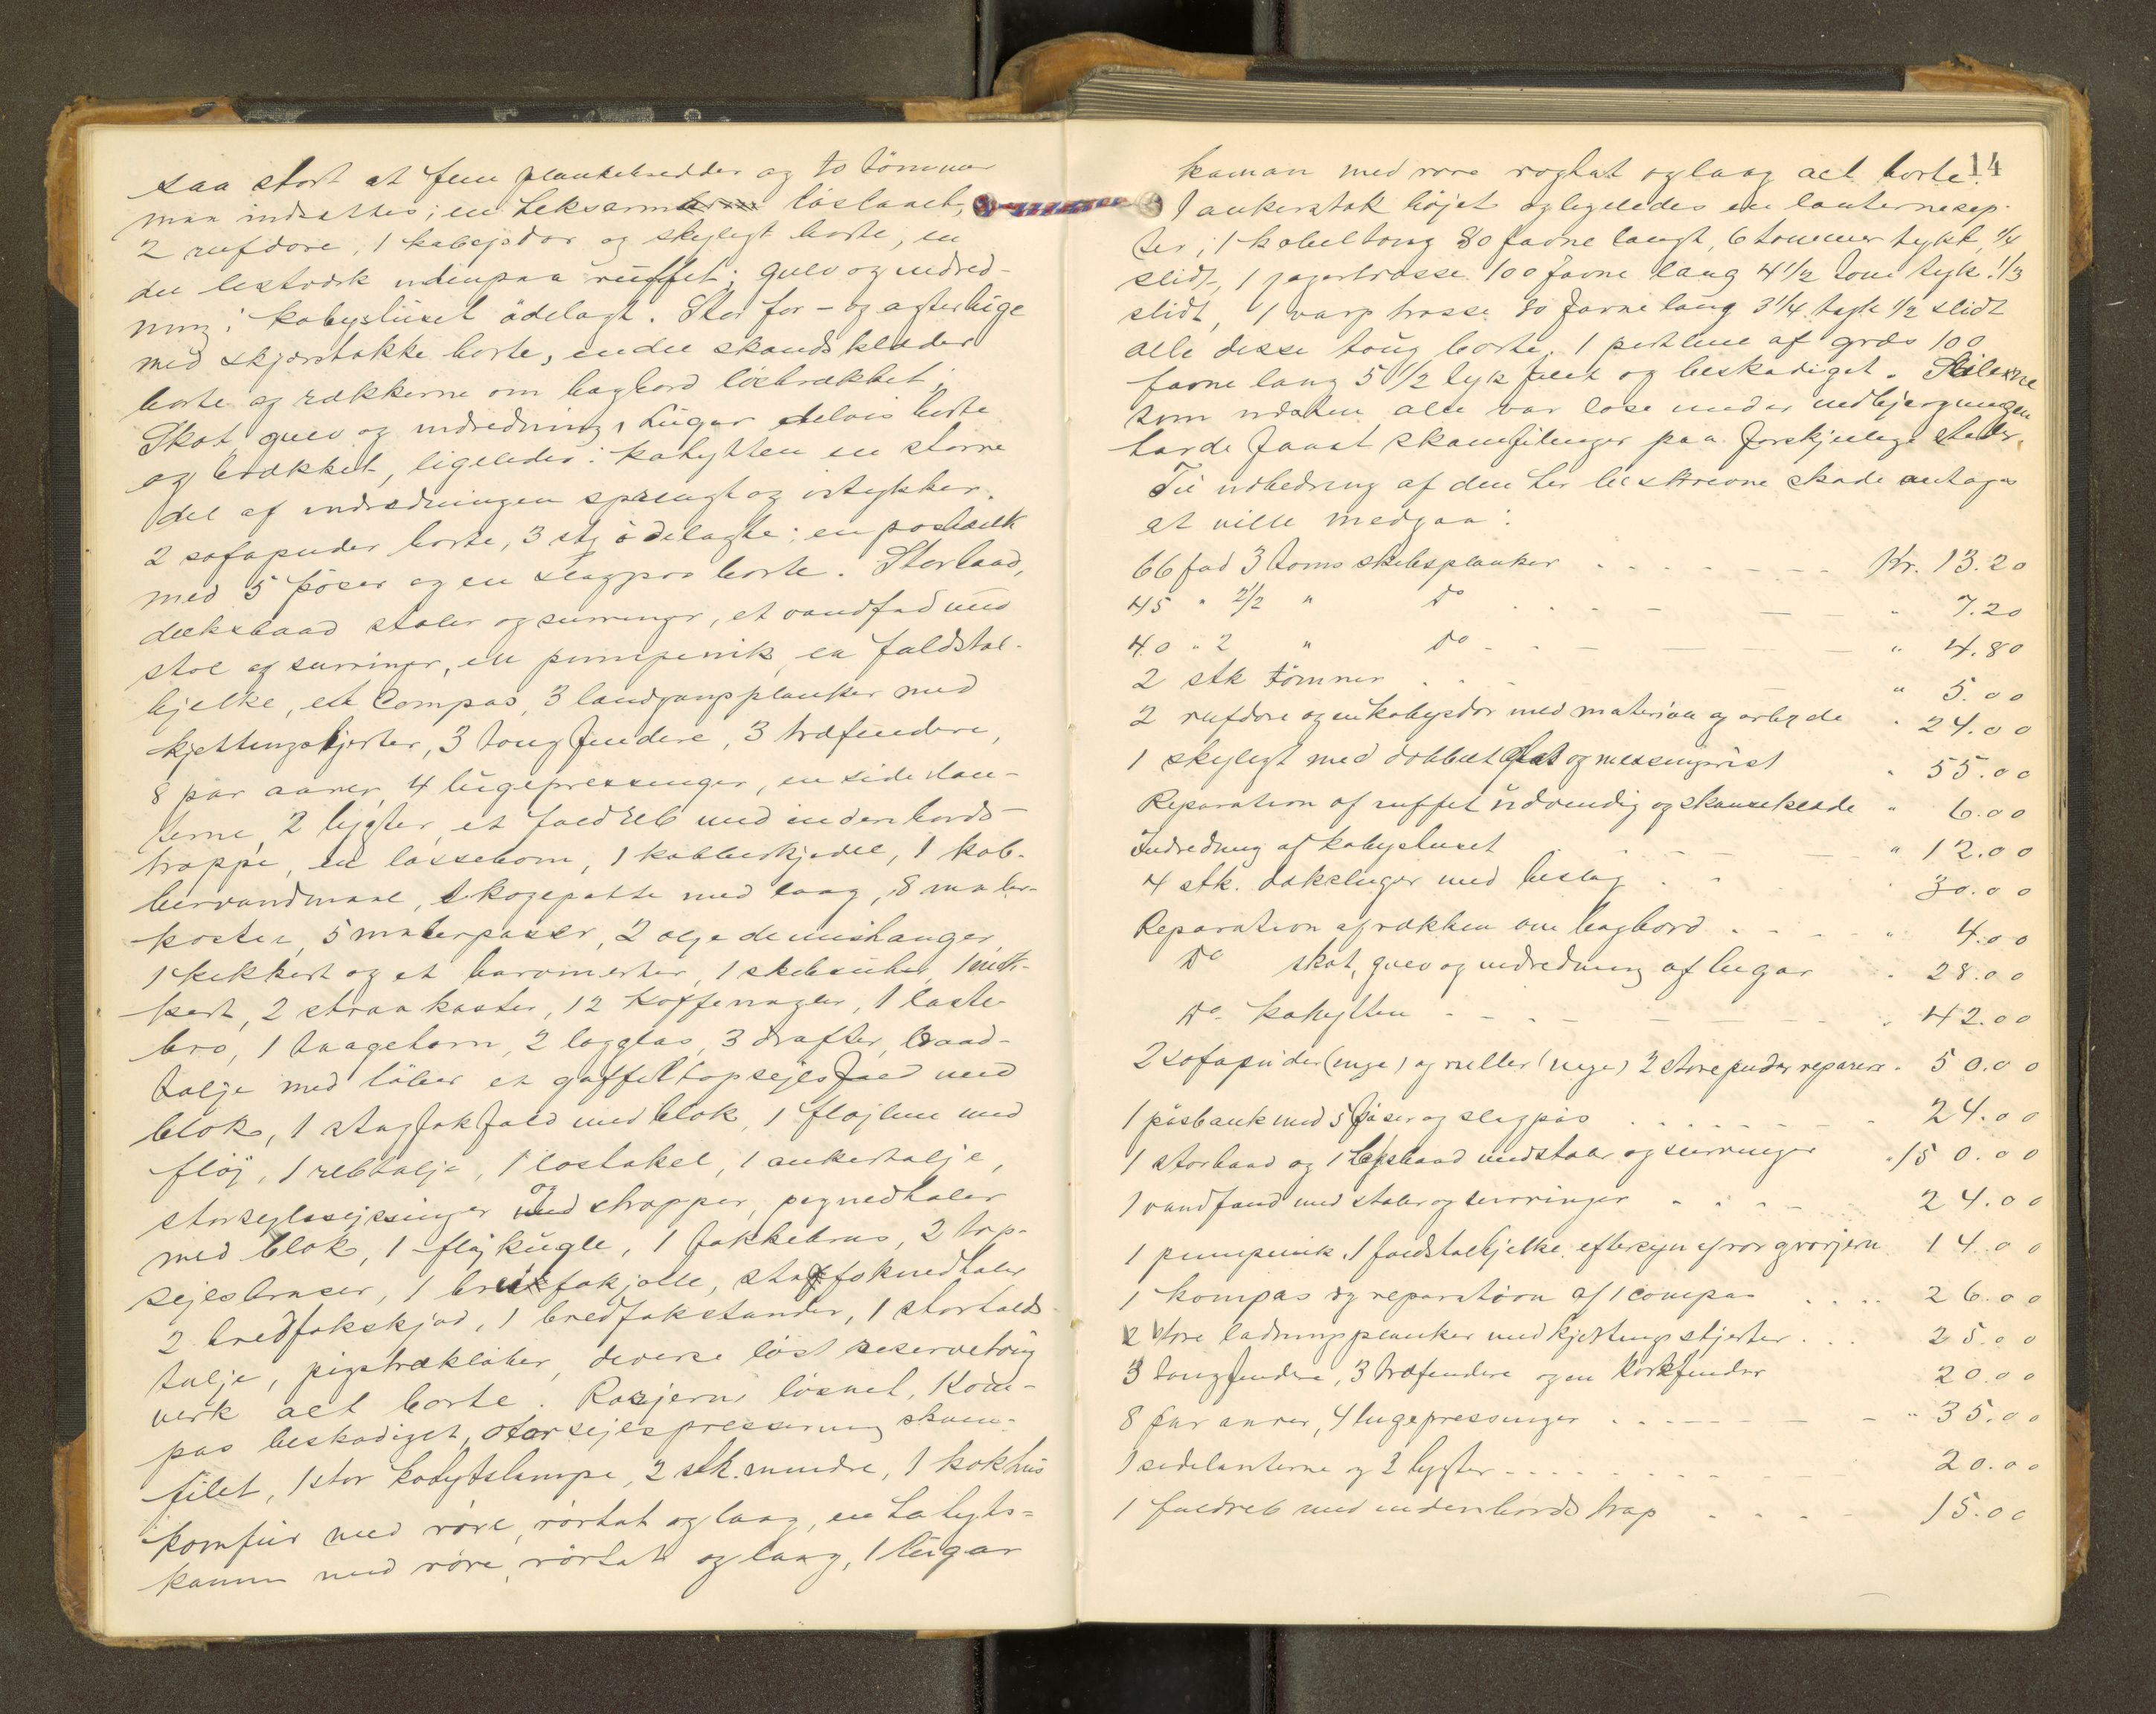 saa stort at fem plankebredder og to tömmer
maa indsættes; en heksarm löslaaet,
2 rufdöre, 1 kabysdör og skylegt borte, en
del listværk udenpaa ruffet; gulv og indred-
ning i kabyshuset ödelagt. Stor for - og agterluge
med skjærstokke borte, endel skandsklæder
borte og rækkerne om bagbord lösbrækket;
Skot gulv og indredning i Lugar delvis borte
og brækket, ligeledes i kahytten en större
del af indredningen sprengt og istykker.
2 sofapuder borte, 3 stk ödelagte; en pøsbænk
med 5 pöser og en slagpøs borte. Storbaad,
deksbaad stoler og surringer, et vandfad med
stol og surringer, en pumpenik, en faldstol-
bjelke, et Compas, 3 landgangsplanker med
kjettingstjerter, 3 tougfendere, 3 træfendere,
8 par aarer, 4 lugepressenger, en sidelan-
terne, 2 lygter, et faldreb med indenbords
trappe, en lossebom, 1 kobberkjedel, 1 kob-
bervandmaal, 1 kogepotte med laag, 8 maler-
koster, 5 malerpøser, 2 oljedunishanger,
1 kikkert og et barometer, 1 skibsuhr, 1
kert, 2 straakoster, 12 Koffenagler, 1 laste-
bro, 1 taagehorn, 2 logglas, 3 drafter, baad-
talje med löber et gaffeltopsejlsfald med
blok, 1 stagfokfald med blok, 1 flöjline med
flöj, 1 rebtalje, 1 lostakel, 1 ankertalje,
storsejlssejsinger og stropper, pignedhaler
med blok, 1 flöjkugle, 1 fokkebras, 2 top-
sejlsbraser, 1 bredfokjolle, stagfoknedhaler
2 bredfokskjöd, 1 bredfokstander, 1 storhals-
talje, pigstrækløber, diverse löst reservetoug
verk alt borte. Rorjern lösnet, Kom-
pas beskadiget, storsejlspressening skam-
filet, 1 stor kahytslampe, 2 stk. mindre, 1 kokhus
komfür med röre, rörhat og laag, en kahyts-
kamin med röre, rörhat og laag, 1 lügar
14
kamin med röre röghat og laag alt borte.
1 ankerstok böjet og ligeledes en lanternesep-
ter; 1 kabeltoug 80 favne langt, 6 tommer tykt, 1/4
slidt, 1 pajertrosse 100 favne lang 4 1/2 tom tyk. 1/3
slidt, 1 varp trosse 80 favne lang 3 1/4 tyk 1/2 slidt
alle disse toug borte. 1 pertline af græs 100
favne lang 5 1/2 tyk filet og beskadiget. Seilerne
som næsten alle var löse under nedbjergningen
havde faaet skamfilinger paa forskjellige steder.
Til udbedring af den her beskrevne skade antages
at ville medgaa:
66 fod 3 toms skibsplanker . . . . . . Kr. 13.20
45 " 2 1/2 " Do . . . . " 7.20
40 " 2 " Do - - - " 4.80
2 stk tömmer . . . " 5.00
2 rufdöre og en kabysdör med materiale og arbejde " 24.00
1 skylegt med dobbelt glas og messingrist " 55.00
Reparation af ruffet udvendig og skanseklæde " 6.00
Indredning af kabyshuset " 12.00
4 stk. dæksluger med beslag . . 30.00
Reparation af rækken om bagbord . . . . " 4.00
Do skot, gulv og indredning af lugar . . 28.00
Do kahytten - - - - " 42.00
2 sofapuder (nye) og ruller (nye) 2 store puder reparers . 50.00
1 pösbænk med 5 pöser og slagpös . . . . . 24.00
1 storbaad og 1 deksbaad med stoler og surringer " 150.00
1 vandfad med stoler og surringer . . . 24.00
1 pumpenik. 1 faldstolbjelke eftersyn af ror og rorjern 14.00
1 kompas og reparation af 1 compas . . . . 26.00
2 store ladningsplanker med kjettingstjerter . . . 25.00
3 tougfendere, 3 træfendere og en korkfender 20.00
8 par aarer, 4 lugepressenger . . . - - - " 35.00
1 sidelanterne og 2 lygter - . . . . 20.00
1 faldreb med indenbords trap . . . . - 15.00